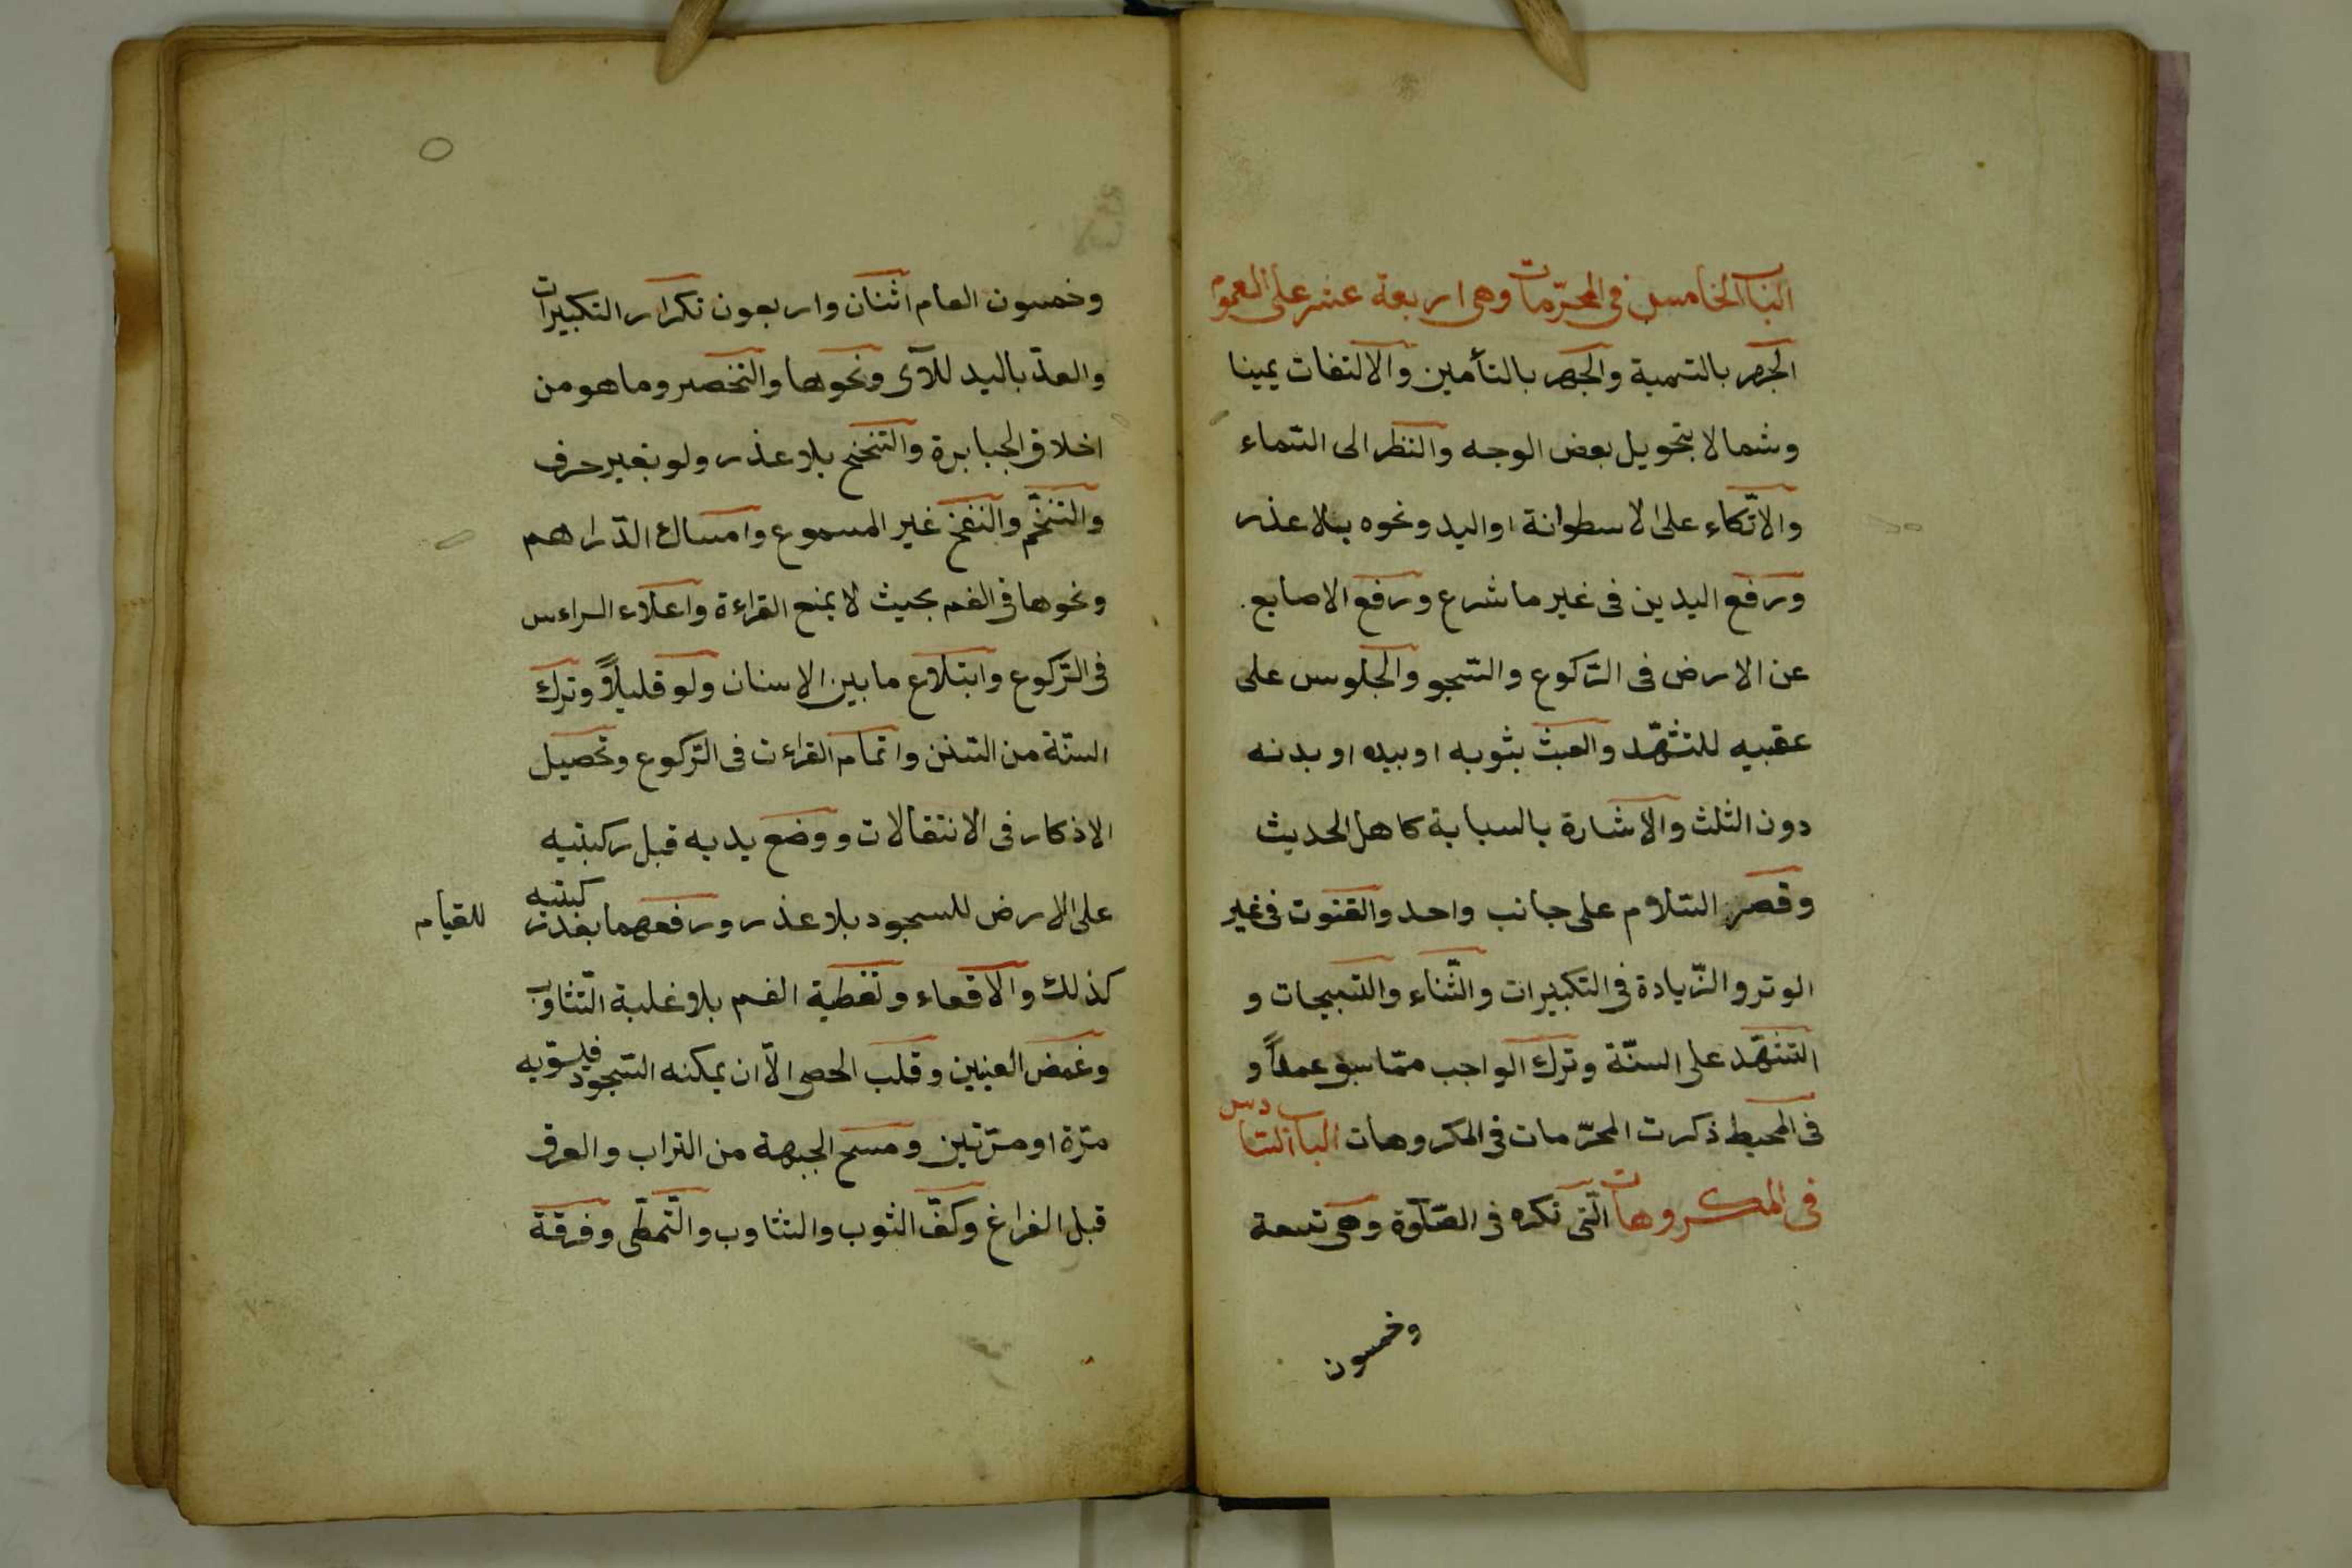 الباب الخامس فى المحرّمات وهى اربعة عشر على العموم
الجهر بالتسمية والجهر بالتأمين والالتفات يمينا
وشمالا بتحويل بعض الوجه والنظر الى السّماء
والاتّكاء على الاسطوانة او اليد ونحوه بلا عذر
ورفع اليدين فى غير ما شرع ورفع الاصابع
عن الارض فى الرّكوع والسّجو والجلوس على
عقبيه للتشهّد والعبث بثوبه او بيده او بدنه
دون الثلث والاشارة بالسبابة كاهل الحديث
وقصر السّلام على جانب واحد والقنوت فى غير
الوتر والزّيادة فى التكبيرات والثّناء والتسبيحات و
التشهّد على السنّة وترك الواجب ممّا سبق عمداً و
فى المحيط ذكرت المحرّمات فى المكروهات الباب السّادس
فى المكروهات الّتى تكره فى الصّلوة وهى تسعة
وخمسون
وخمسون العام اثنان واربعون تكرار التكبيرات
والعدّ باليد للآى ونحوها والتخصر وما هو من
اخلاق الجبابرة والتنحنح بلا عذر ولو بغير حرف
والتنخّم والنفخ غير المسموع وامساك الدّراهم
ونحوها فى الفم بحيث لا يمنع القراءة واعلاء الراءس
فى الرّكوع وابتلاع ما بين الاسنان ولو قليلاً وترك
السنّة من السّنن واتمام القراءت فى الرّكوع وتحصيل
الاذكار فى الانتقالات ووضع يديه قبل ركبتيه
على الارض للسجود بلا عذر ورفعهما بعد ركبتيه للقيام
كذلك والاقعاء وتغطية الفم بلا غلبة التّثاوب
وغمض العينين وقلب الحصى الاّ ان يمكنه السّجود فيسوّيه
مرّة او مرّتين ومسح الجبهة من التراب والعرق
قبل الفراغ وكفّ الثوب والتثاوب والتّمطّى وفرقة